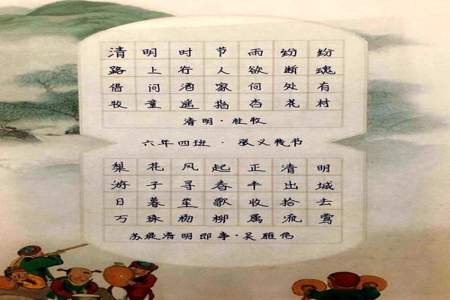 清明时节雨纷纷
路上行人欲断魂
借问酒家何处有
牧童遥指杏花村
清明·杜牧
六年四班·张义传书
梨花风起正清明
游子寻春半出城
日暮笙歌收拾去
万株杨柳属流莺
苏堤清明即事·吴惟信